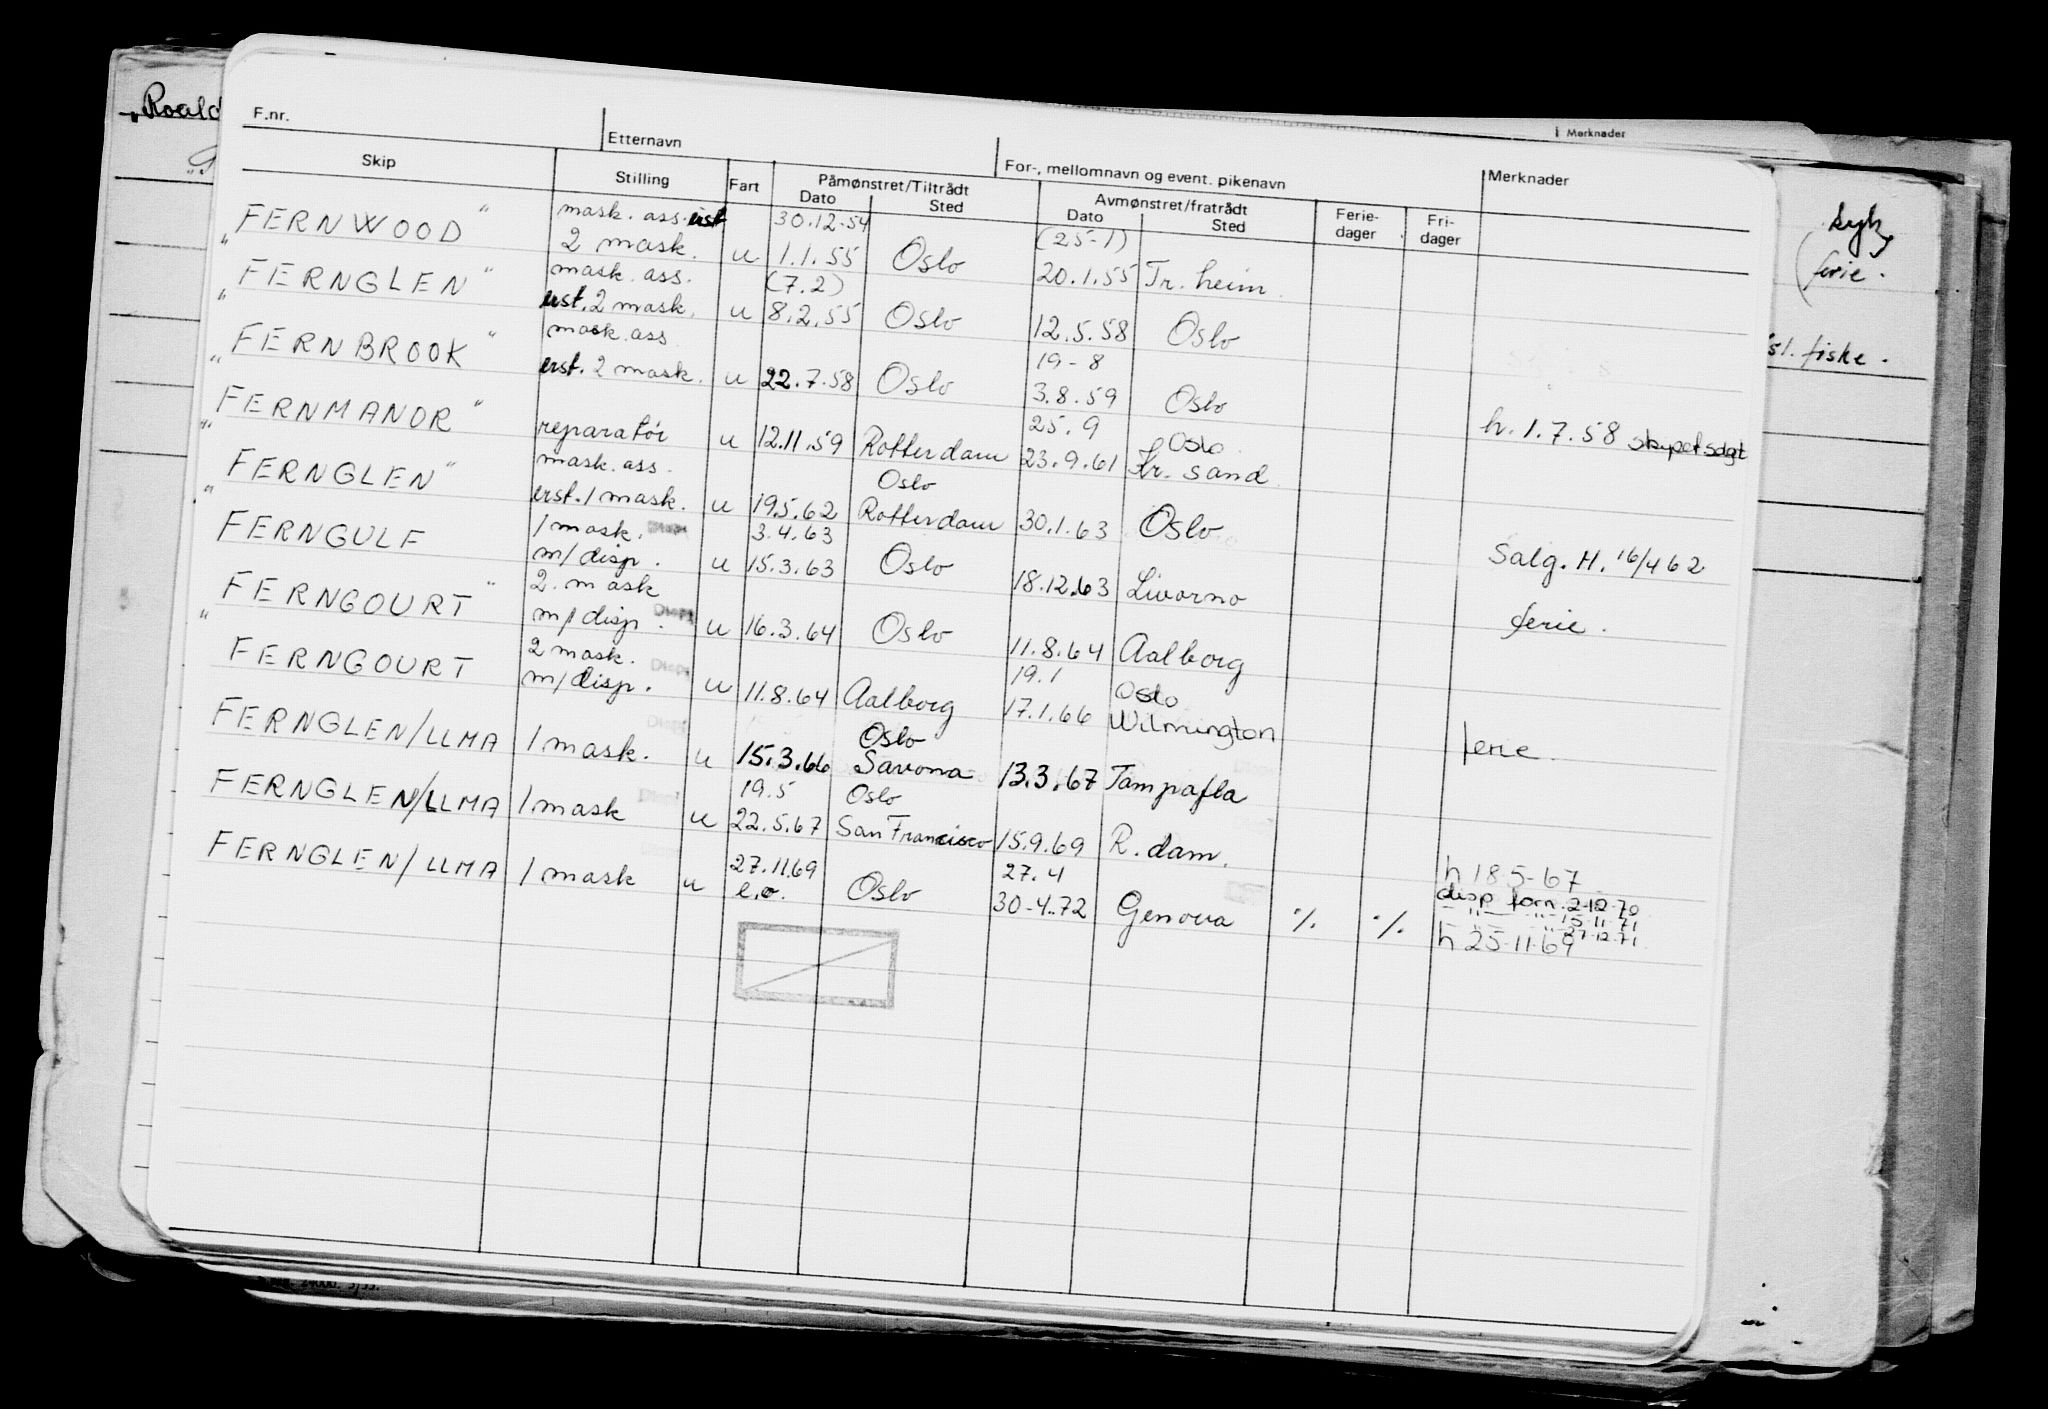 F.nr. Etternavn For-, mellomnavn og event. pikenavn Merknader
Skip Stilling Fart Påmønstret/Tiltrådt Avmønstret/fratrådt Ferie-dager Fri-dager
Dato Sted Dato Sted
mask. ass. erst 30.12.54 (25-1)
"FERNWOOD" 2 mask. u 1.1.55 Oslo 20.1.55 Tr.heim
mask. ass. (7.2)
"FERNGLEN" erst. 2 mask. u 8.2.55 Oslo 12.5.58 Oslo
mask. ass 19-8
"FERNBROOK" erst. 2 mask. u 22.7.58 Oslo 3.8.59 Oslo h. 1.7.58 skipet solgt
25.9 Oslo
"FERNMANOR" reparatör u 12.11.59 Rotterdam 23.9.61 Kr. sand
mask. ass. Oslo
"FERNGLEN" erst. 1 mask. u 19.5.62 Rotterdam 30.1.63 Oslo Salg. H. 16/4 62
1 mask. 3.4.63
FERNGULF m/disp. u 15.3.63 Oslo 18.12.63 Livorno ferie.
2. mask
"FERNGOURT" m/disp. u 16.3.64 Oslo 11.8.64 Aalborg
2 mask. 19.1 Oslo
FERNGOURT m/disp. u 11.8.64 Aalborg 17.1.66 Wilmington ferie.
Oslo
FERNGLEN/LLMA 1 mask. u 15.3.66 Savona 13.3.67 Tampafla
19.5 Oslo
FERNGLEN/LLMA 1 mask u 22.5.67 San Francisco 15.9.69 R.dam. h 18.5-67
27.11.69 27.4 disp forn. 2-12-70
" " 15-11-71
" 27-12-71
FERNGLEN/LLMA 1 mask u e.o. Oslo 30-4.72 Genova %. %. h 25-11-69
Roald
Merknader
syk
(ferie.
fiske.